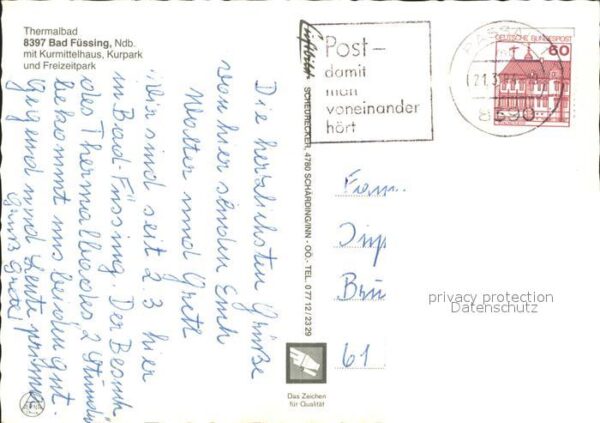 Thermalbad
8397 Bad Füssing, Ndb.
mit Kurmittelhaus, Kurpark
und Freizeitpark
Die herzlichsten Grüße
von hier senden Euch
Walter und Grete
Wir sind seit 2.3 hier
in Bad-Füssing. Der Besuch
des Thermalbades 2 Stunden
bekommt uns beiden gut.
Gegend und Leute prima
Gruß Grete
Luftbild SCHEURECKER, 4780 SCHÄRDING/INN - OÖ.- TEL. 0 77 12 / 23 29
Post-
damit
man
voneinander
hört
PASSAU
21.3.
8390
DEUTSCHE BUNDESPOST
60
Fam.
Bru
61
privacy protection
Datenschutz
Das Zeichen
für Qualität